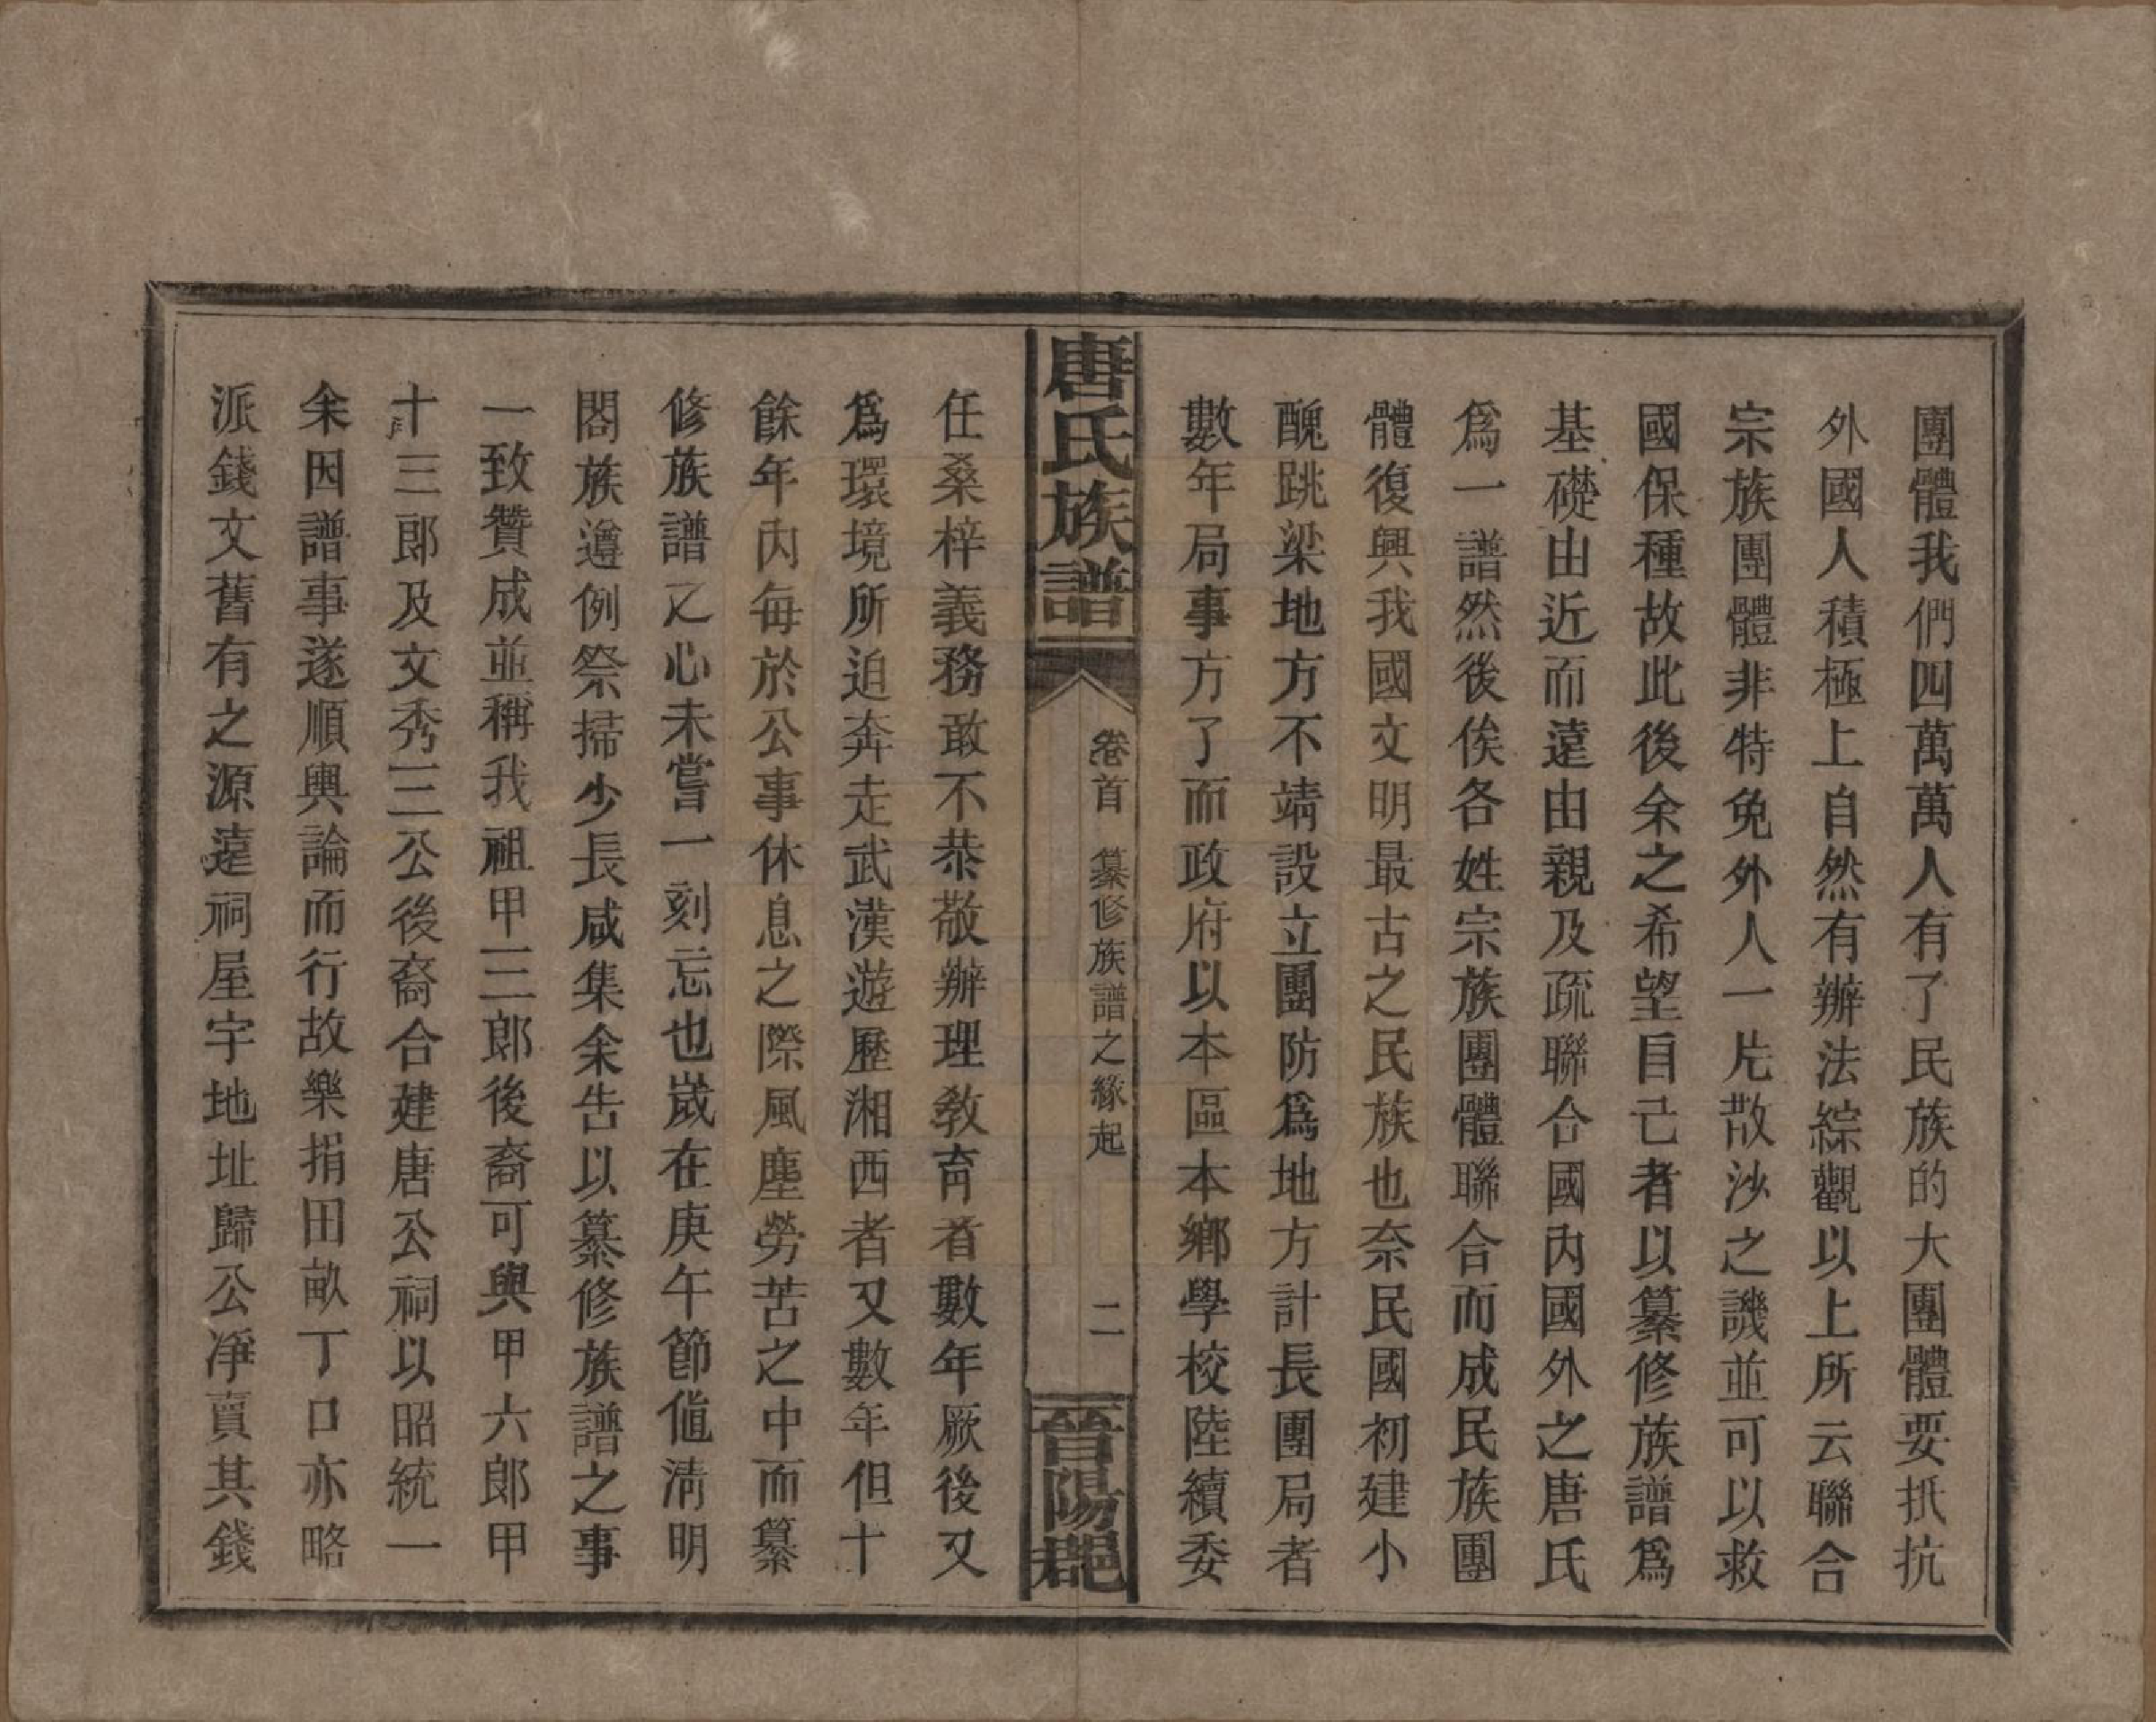 團體我們四萬萬人有了民族的大團體要抵抗
外國人積極上自然有辦法綜觀以上所云聯合
宗族團體非特免外人一片散沙之譏並可以救
國保種故此後余之希望自己者以纂修族譜爲
基礎由近而遠由親及疏聯合國內國外之唐氏
爲一譜然後俟各姓宗族團體聯合而成民族團
體復興我國文明最古之民族也奈民國初建小
醜跳梁地方不靖設立團防爲地方計長團局者
數年局事方了而政府以本區本鄉學校陸續委
唐氏族譜
卷首 纂修族譜之緣起 二
晉陽郡
任桑梓義務敢不恭敬辦理教育者數年厥後又
爲環境所迫奔走武漢遊歷湘西者又數年但十
餘年內每於公事休息之際風塵勞苦之中而纂
修族譜之心未嘗一刻忘也歲在庚午節値淸明
閤族遵例祭掃少長咸集余告以纂修族譜之事
一致贊成並稱我祖甲三郎後裔可與甲六郎甲
十三郎及文秀三公後裔合建唐公祠以昭統一
余因譜事遂順輿論而行故樂捐田畝丁口亦略
派錢文舊有之源遠祠屋宇地址歸公凈賣其錢